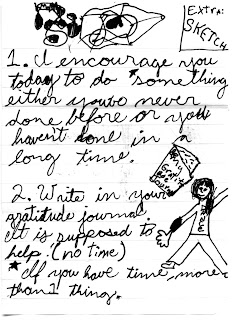 EXTRA:
SKETCH
1. I encourage you
today to do *something
either you've never
done before or you
haven't done in a
long time.
2. Write in your
gratitude journal.
It is supposed to
help. (no time)
*If you have time, more
than 1 thing.